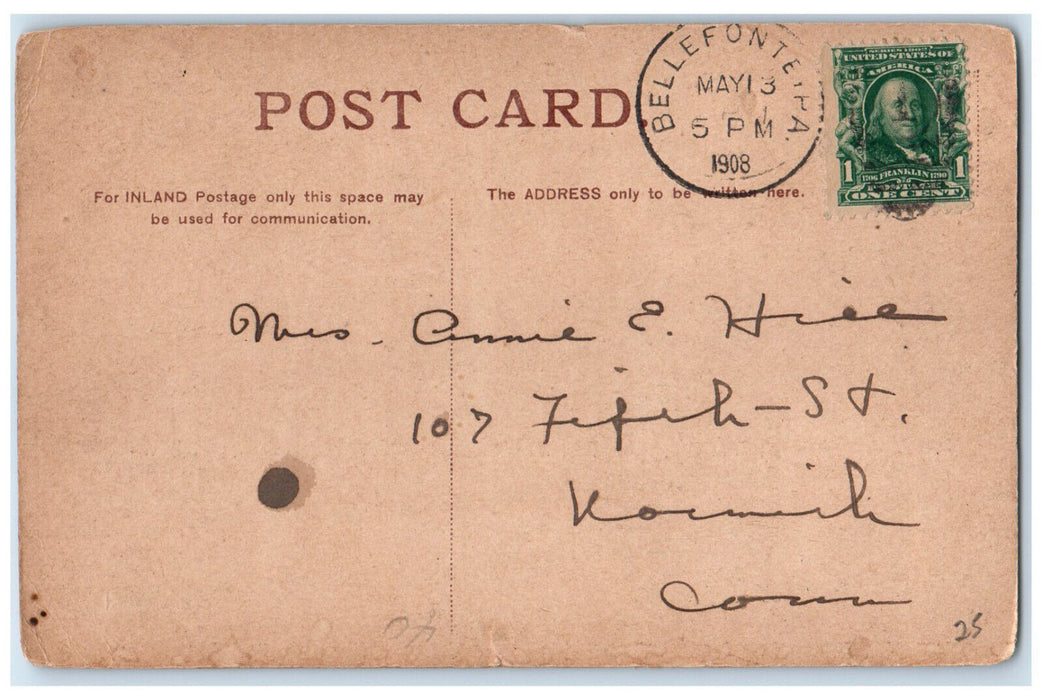 POST CARD.
BELLEFONTE, PA.
MAY 13
5 PM
1908
SERIES 1902
UNITED STATES OF
AMERICA
1 1706 FRANKLIN 1790 1
POSTAGE
ONE CENT
For INLAND Postage only this space may
be used for communication.
The ADDRESS only to be written here.
Mrs. Annie E. Hill
107 Fifth-St.
Norwich
Conn
25